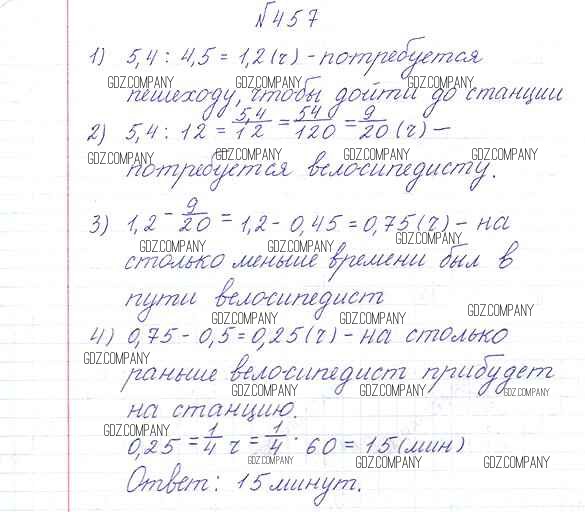 №457
1) 5,4 : 4,5 = 1,2 (ч) - потребуется
GDZ.COMPANY GDZ.COMPANY GDZ.COMPANY
пешеходу, чтобы дойти до станции
2) 5,4 : 12 = 5,4/12 = 54/120 = 9/20 (ч) –
GDZ.COMPANY GDZ.COMPANY GDZ.COMPANY GDZ.COMPANY
потребуется велосипедисту.
3) 1,2 - 9/20 = 1,2 - 0,45 = 0,75 (ч) – на
GDZ.COMPANY GDZ.COMPANY GDZ.COMPANY
столько меньше времени был в
пути велосипедист
GDZ.COMPANY GDZ.COMPANY GDZ.COMPANY
4) 0,75 - 0,5 = 0,25 (ч) - на столько
GDZ.COMPANY
раньше велосипедист прибудет
GDZ.COMPANY GDZ.COMPANY GDZ.COMPANY
на станцию.
GDZ.COMPANY
0,25 = 1/4 ч = 1/4 · 60 = 15 (мин)
GDZ.COMPANY GDZ.COMPANY GDZ.COMPANY
Ответ: 15 минут.